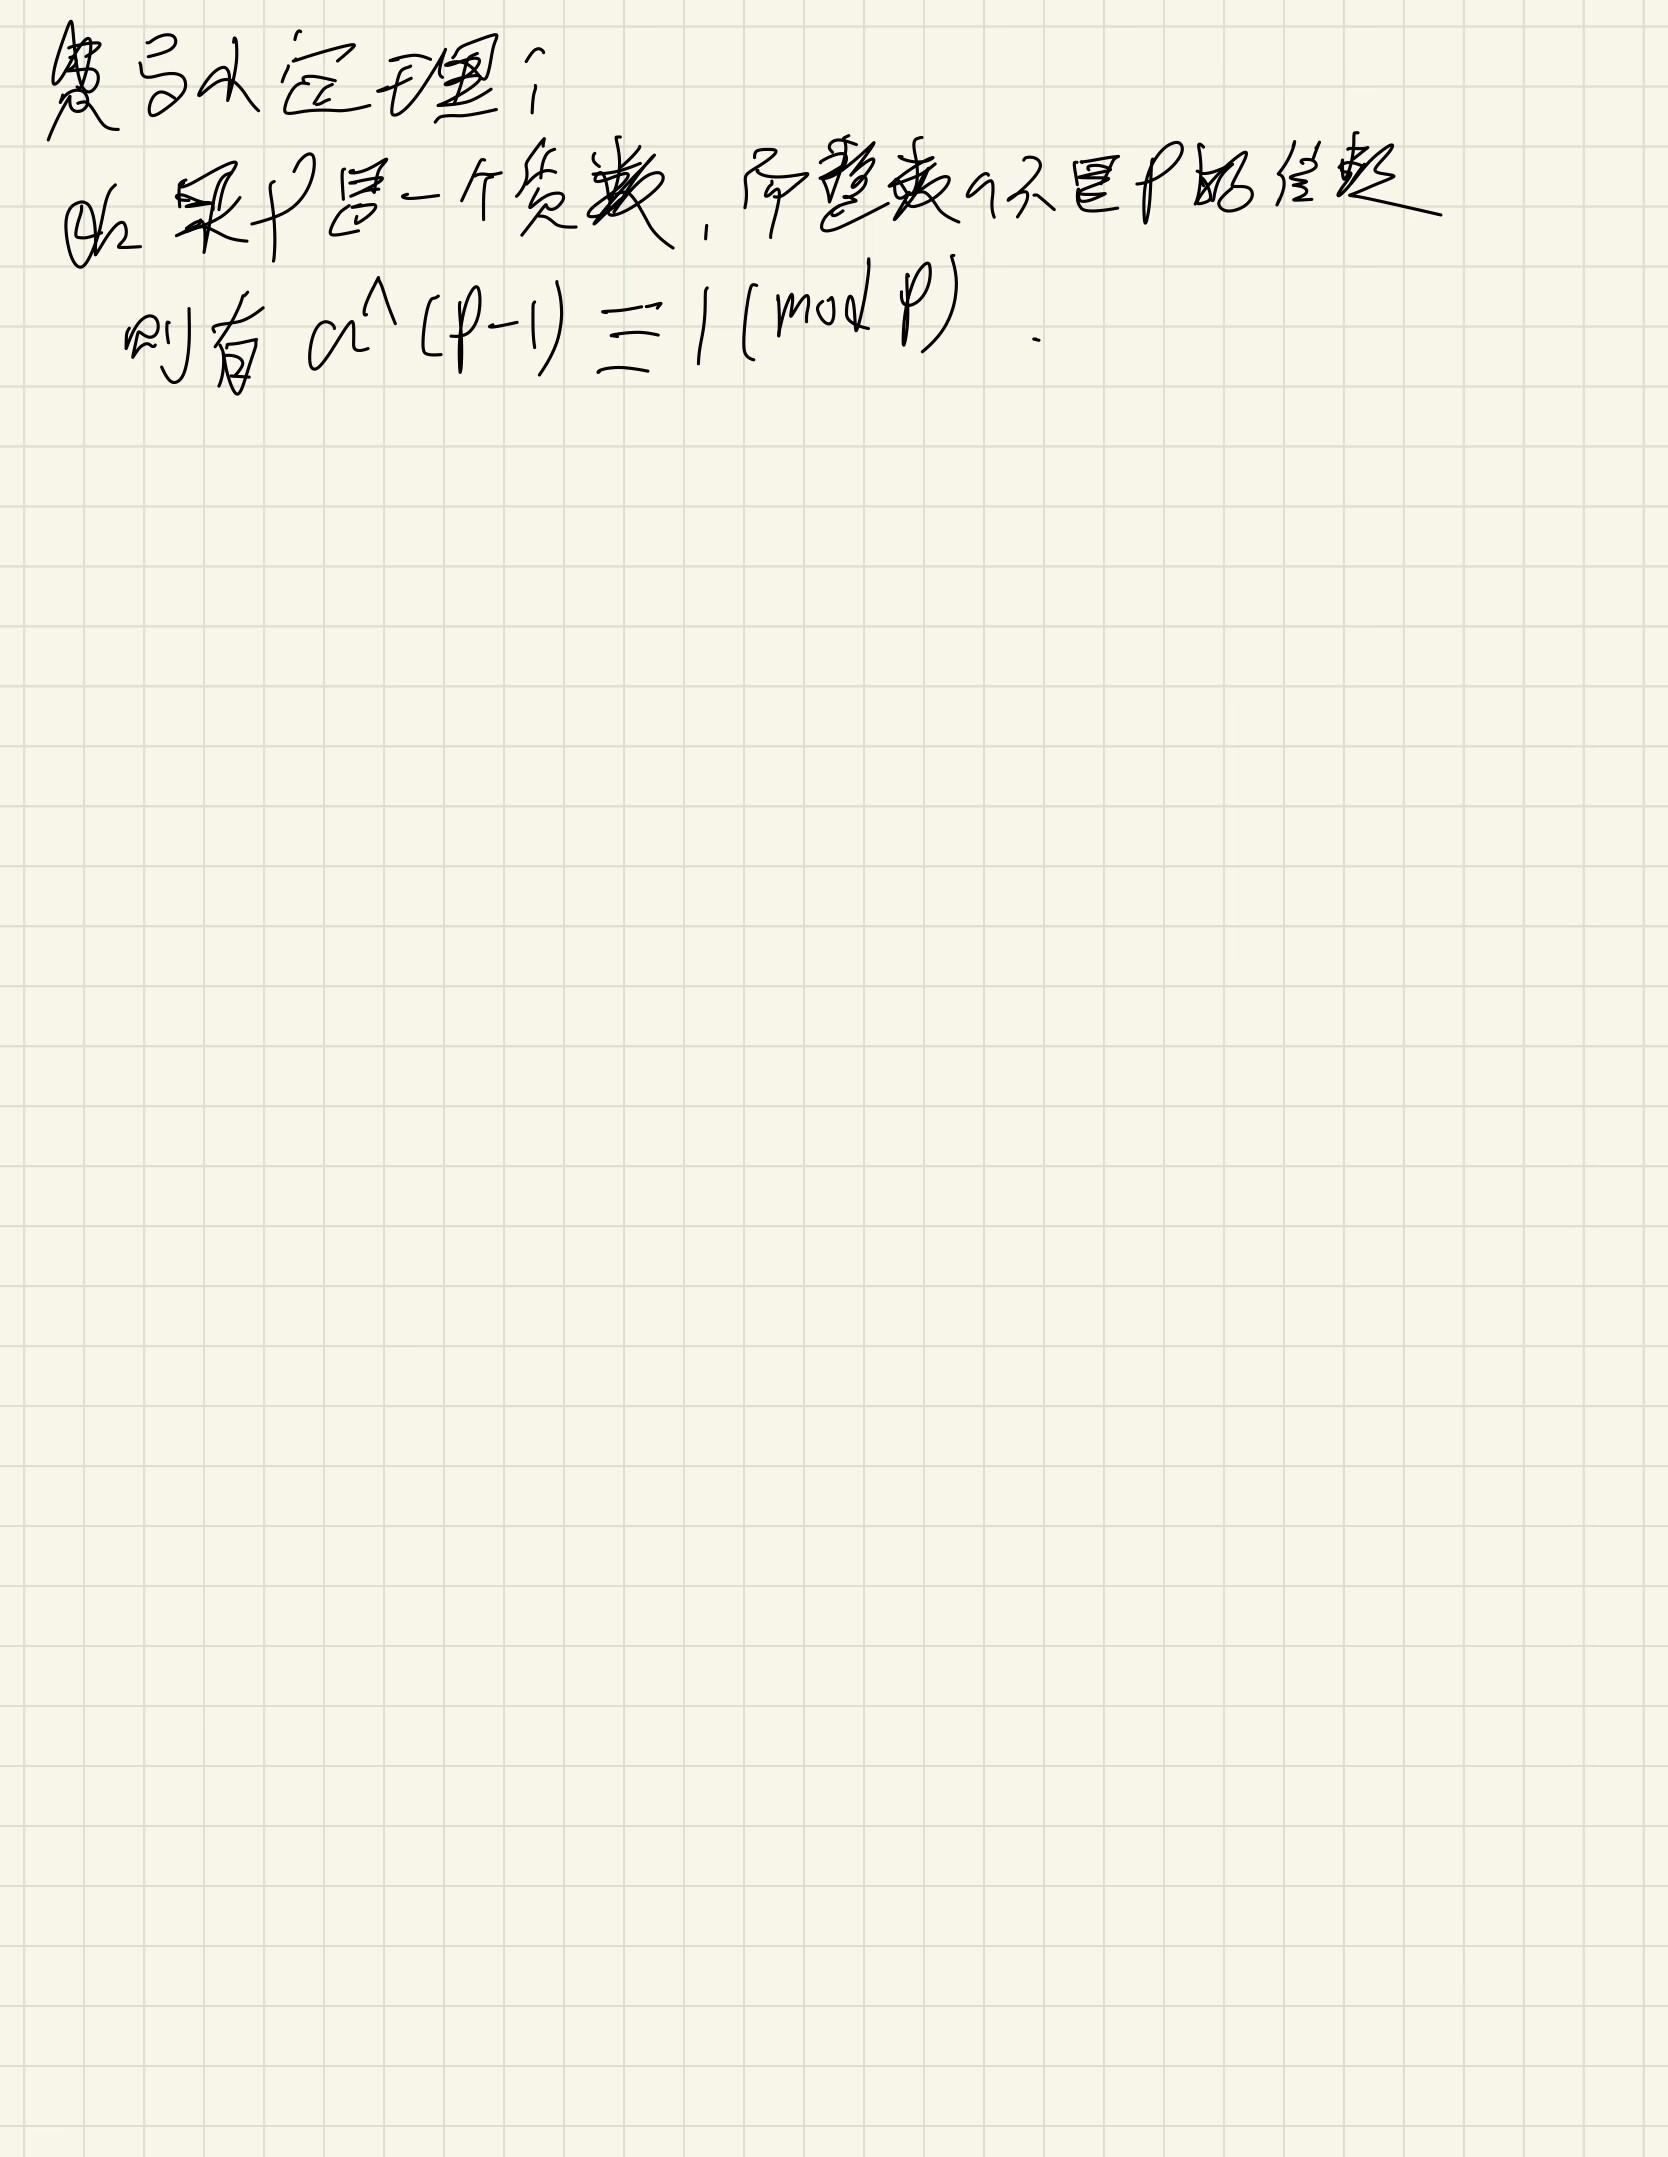 费马小定理:
如果p是一个质数,而整数a不是p的倍数
则有 a^(p-1)≡1(mod p).